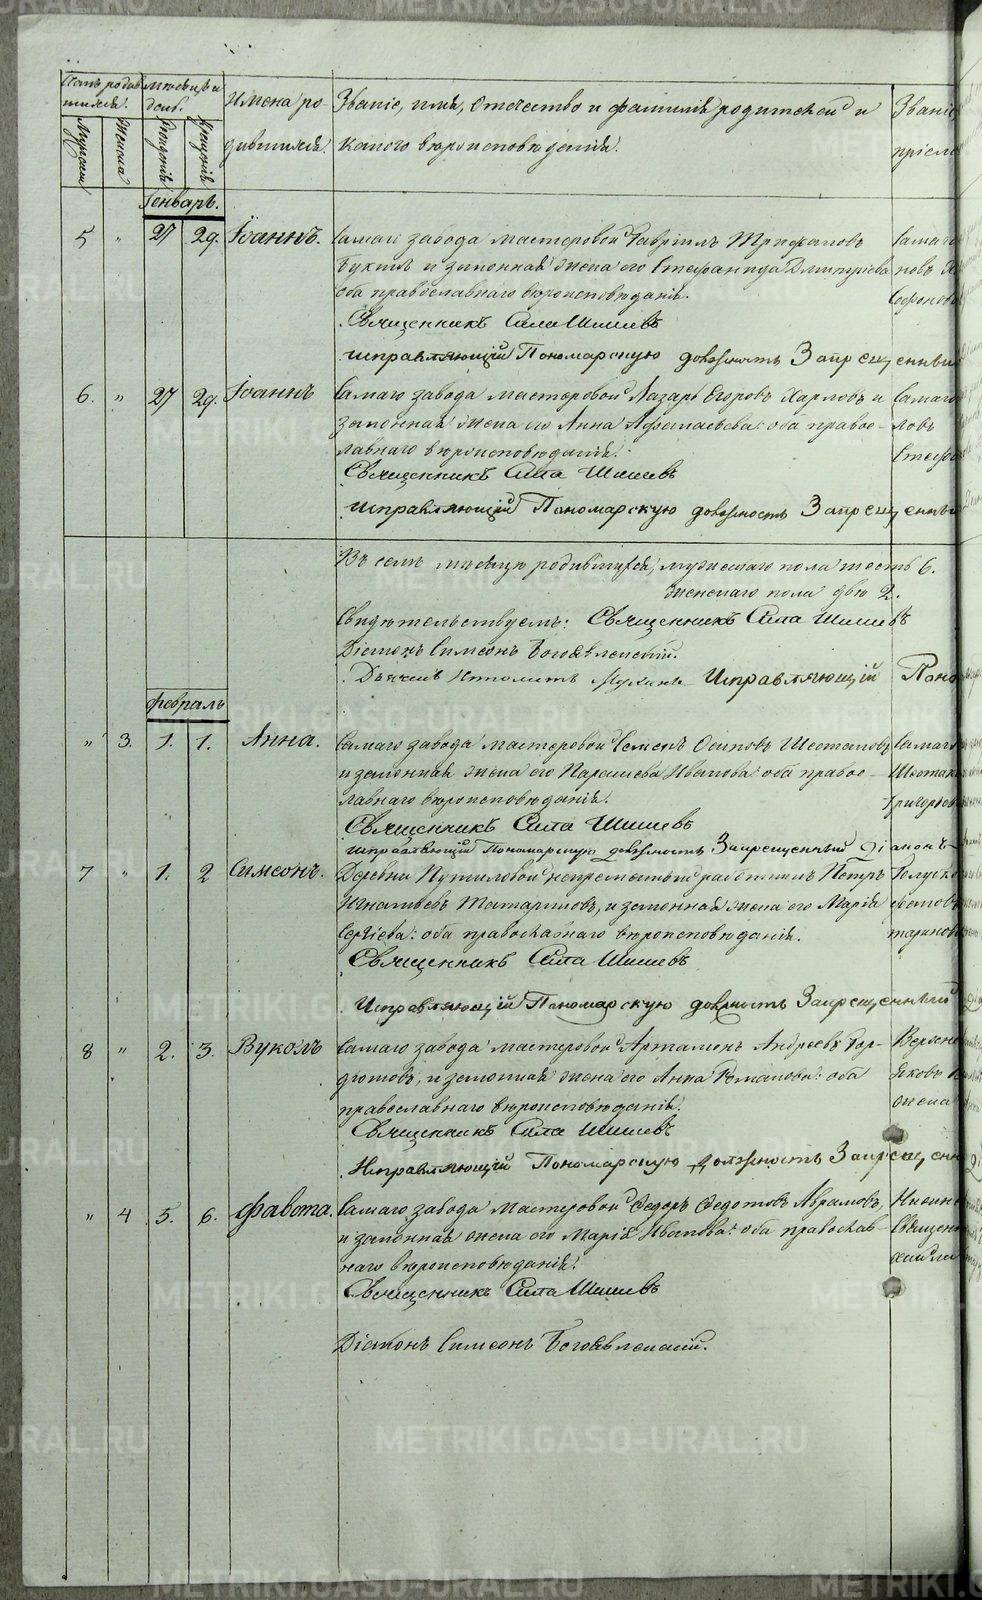 Счетъ родив- мѣсяцъ и Имена ро Званіе, имя, отчество и фамилія родителей и Званіе
шихся. день. дившихся. какого вѣроисповѣданія. пріемн
Мужеск Женска Рожденія Крещенія
Генварь.
5 „ 27 29. Іоаннъ. Самаго завода мастеровой Гавріилъ Трифановъ Самаго
и законная жена его Стефанида Дмитріева новъ
оба православнаго вѣроисповѣданія.
Священникъ Сила Шишевъ
исправляющій Пономарскую должность Запрещенный
6. „ 27 29. Іоаннъ Самаго завода мастеровой Лазарь Егоровъ Харловъ и Самаго
законная жена его Анна Афанасьева: оба правос- ловъ
лавнаго вѣроисповѣданія. Стефа
Священникъ Сила Шишевъ
исправляющій Пономарскую должность Запрещенный
Въ семъ мѣсяцѣ родившихся, мужескаго пола шесть 6.
женскаго пола двѣ 2.
Свидѣтельствуемъ: Священникъ Сила Шишевъ
Діаконъ Симеонъ Богоявленскій.
Дьячекъ Ипполитъ Исправляющій Поно
Февраль
„ 3. 1. 1. Анна. Самаго завода мастеровой Семенъ Осиповъ Шестаковъ Самаго
и законная жена его Параскева Иванова: оба правос- Шестак
лавнаго вѣроисповѣданія. Григорьев
Священникъ Сила Шишевъ
исправляющій Пономарскую должность Запрещенный Діаконъ
7 „ 1. 2 Симеонъ. Деревни Путиловой непремѣнный работникъ Петръ
Игнатьевъ Татариновъ, и законная жена его Марія
Сергіева: оба православнаго вѣроисповѣданія. таринов
Священникъ Сила Шишевъ
Исправляющій Пономарскую должность Запрещенный
8 „ 2. 3. Вуколъ Самаго завода мастеровой Артамонъ Андреевъ Гор-
дѣтовъ, и законная жена его Анна Романова: оба Яковъ
православнаго вѣроисповѣданія. жена
Священникъ Сила Шишевъ
Исправляющій Пономарскую должность Запрещенн
„ 4 5. 6. Фавста. Самаго завода мастеровой Федоръ Федотовъ Абрамовъ,
и законная жена его Марія Иванова: оба православ- Священ
наго вѣроисповѣданія.
Священникъ Сила Шишевъ
Діаконъ Симеонъ Богоявленскій.
METRIKI.GASO-URAL.RU